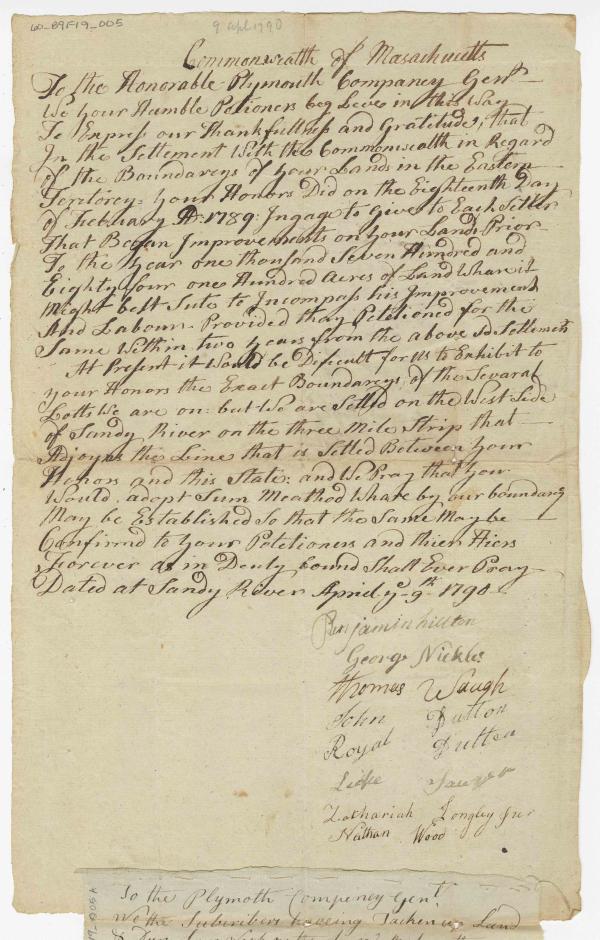 60-09F19-005
9 Apl 1790
Commonwealth of Masachusetts
To the Honorable Plymouth Companey Gent.
We your Humble Petioners beg Leve in this Way
To Express our Thankfullness and Gratitude, that
In the Settlement With the Commonwealth in Regard
of the Boundareys of your Lands in the Eastern
Territorey: your Honors Did on the Eighteenth Day
of Feebuary AD: 1789: Ingage to Give to Each Settler
That Began Improvements on your Land: Prior
To the year one thousand Seven Hundred and
Eighty four one Hundred Acres of Land Whare it
Might best Sute to Incompass his Improvement
And Labour. Provided thay Petioned for the
Same Within two Years from the above Sd Settlement
At Present it Would be Dificult for Us to Exhibit to
your Honors the Exact Boundareys of the Sevaral
Lotts We are on: but We are Setled on the West Side
of Sandy River on the three Mile Strip that
Adjoyns the Line that is Setled Between Your
Honors and this State: and We Pray that you
Would adopt Sum Meathod Whare by our boundarey
May be Established So that the Same May be
Confirmd to Your Petetioners and thier Hiers
Forever as in Deuty bound Shall Ever Pray
Dated at Sandy River April ye 9th 1790
Benjamin hilton
George Nickles
Thomas Waugh
John Dutton
Royal Dutten
Luke Sawyer
Zachariah Longley Jur
Nathan Wood
To the Plymoth Compeney Gent.
We the Subcribers haveing Tacken up Land